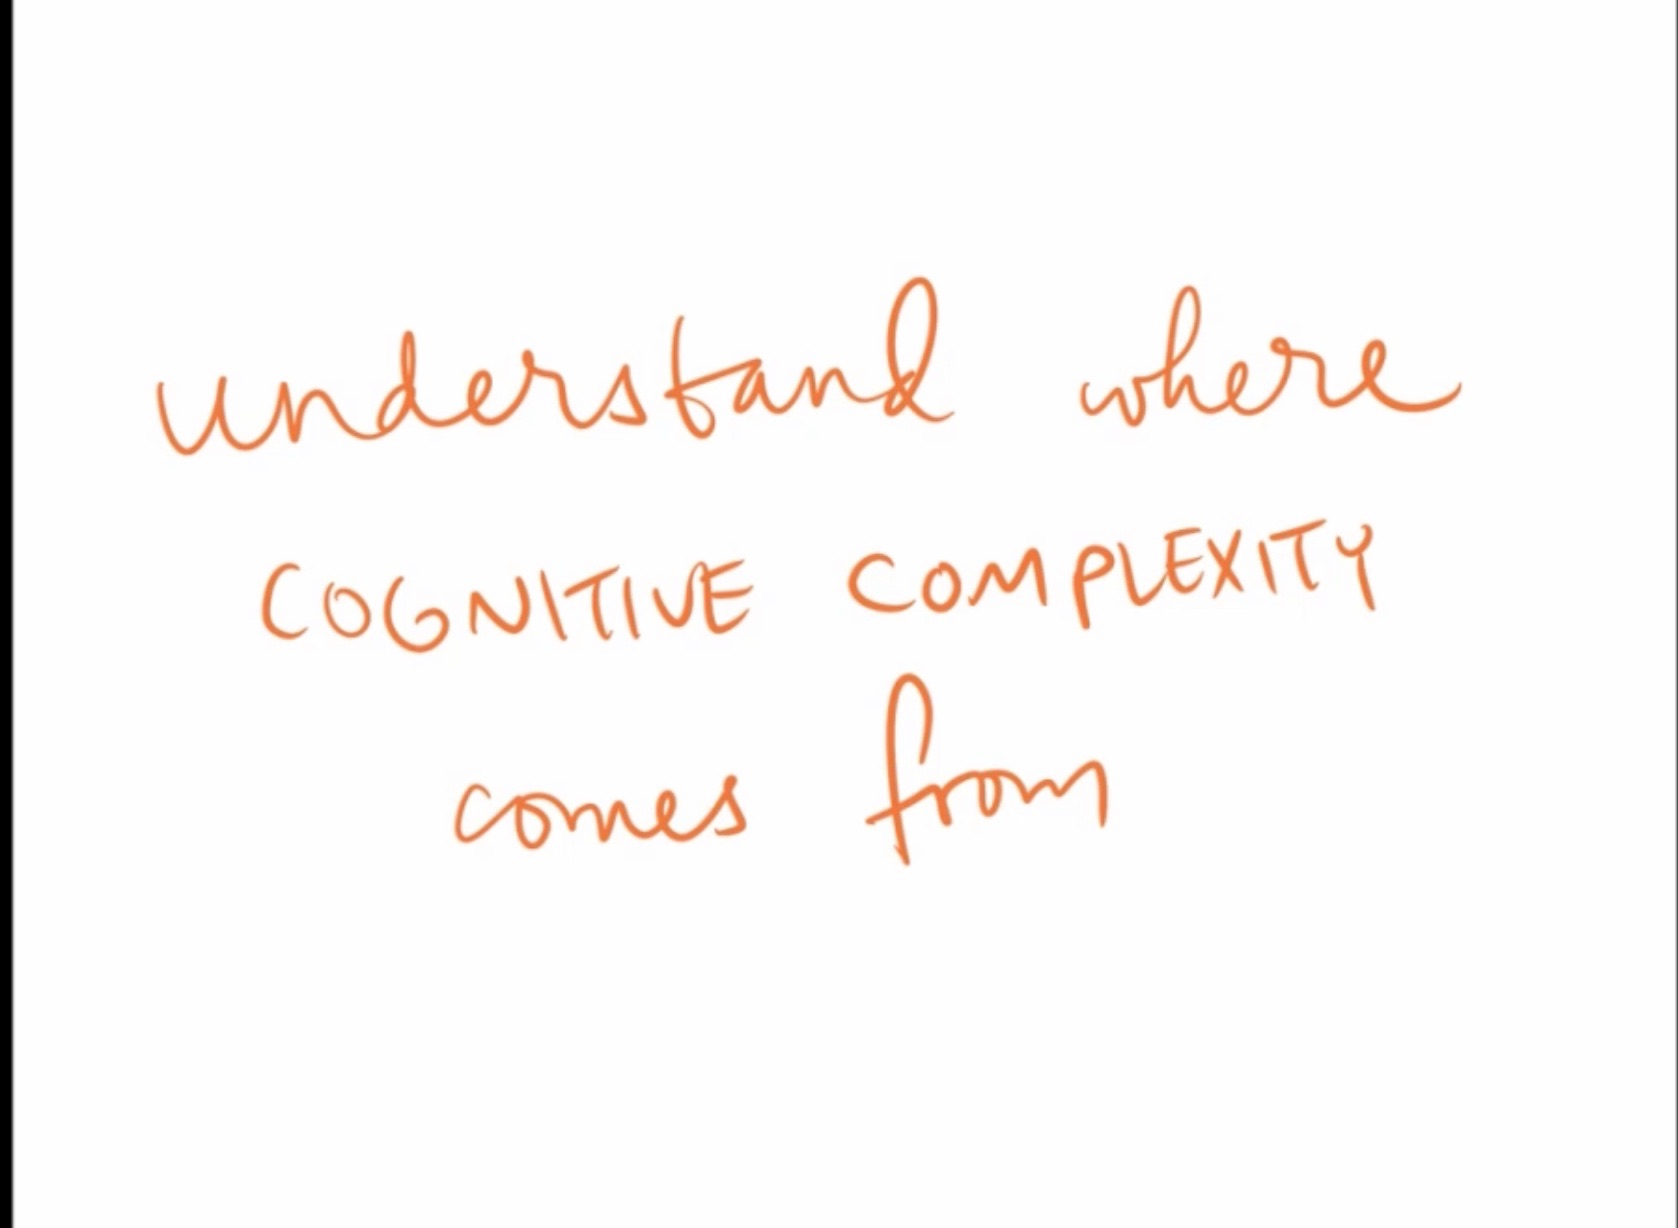 understand where
COGNITIVE COMPLEXITY
comes from